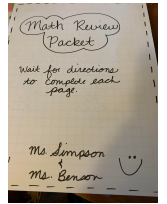 Math Review
Packet
Wait for directions
to complete each
page.
Ms. Simpson
&
Ms. Benson